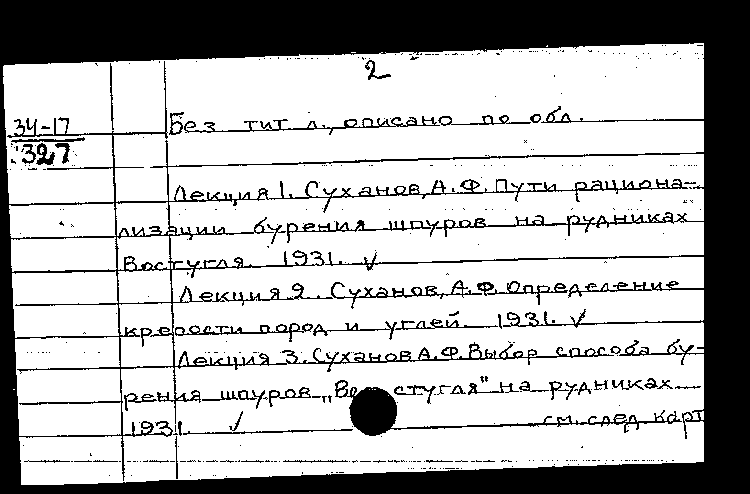 2
34-17
327
Без тит л., описано по обл.
Лекция 1. Суханов, А.Ф. Пути рациона-
лизации бурения шпуров на рудниках
Востугля. 1931. ✓
Лекция 2. Суханов, А.Ф. Определение
крепости пород и углей. 1931. ✓
Лекция 3. Суханов А.Ф. Выбор способа бу-
рения шпуров „Востугля" на рудниках.
1931. ✓ см. след. карт